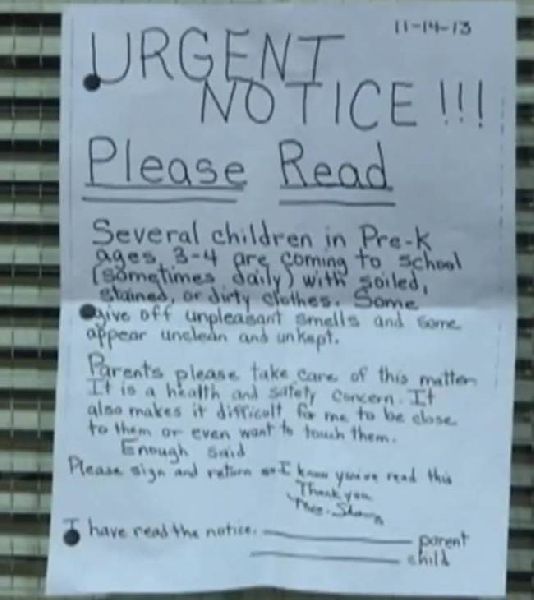 11-14-13
URGENT
NOTICE!!!
Please Read
Several children in Pre-K
ages, 3-4 are coming to school
(sometimes daily) with soiled,
stained, or dirty clothes. Some
give off unpleasant smells and some
appear unclean and unkept.
Parents please take care of this matter.
It is a health and safety concern. It
also makes it difficolt for me to be close
to them or even want to touch them.
Enough said
Please sign and return so I know you've read this
Thank you
I have read the notice. parent
child